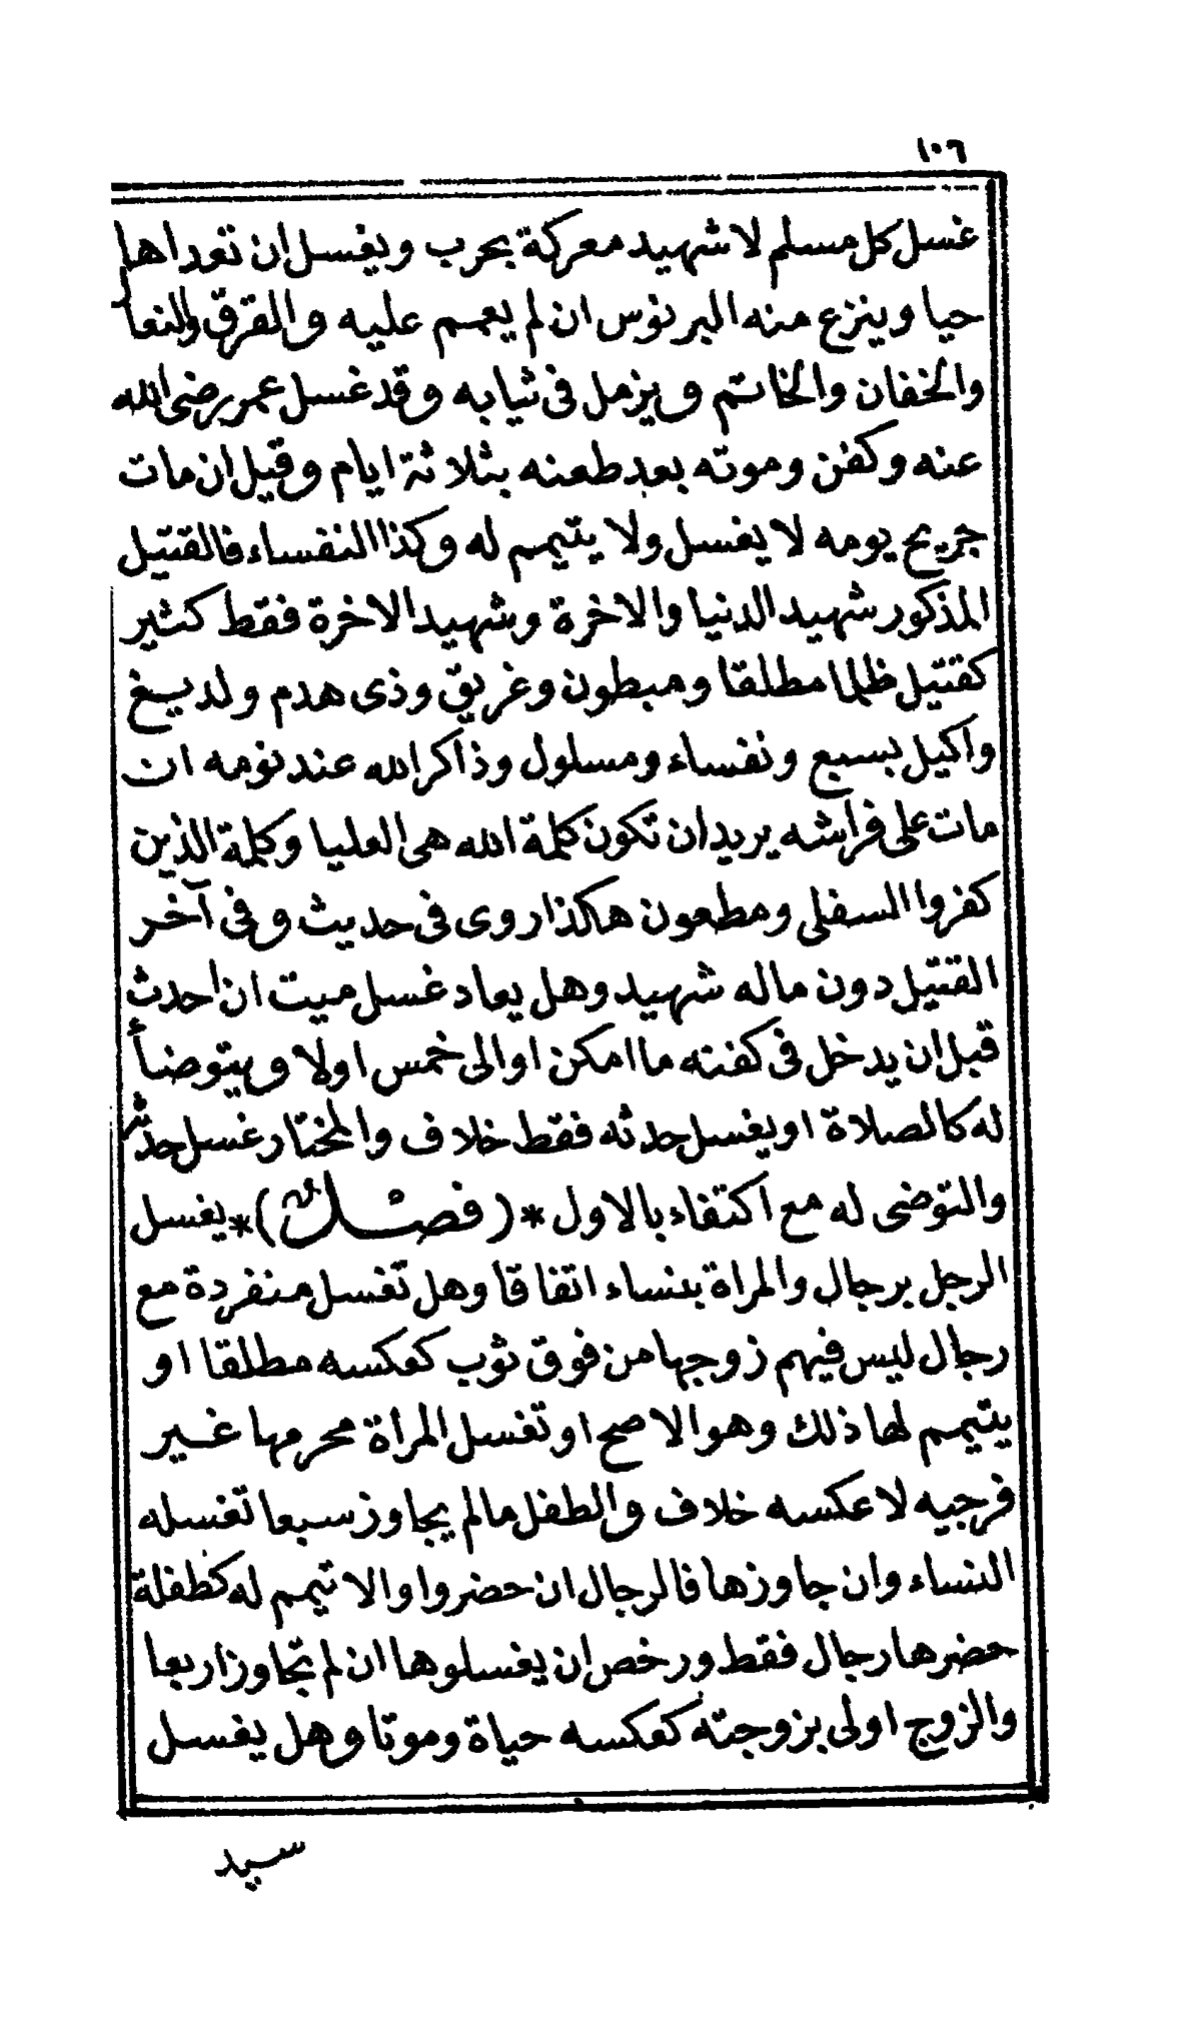 ١٠٦
غسل كل مسلم لا شهيد معركة بحرب ويغسل ان تعداها
حيا وينزع منه البرنوس ان لم يعمم عليه والقرق والنعل
والخفان والخاتم ويزمل فى ثيابه وقد غسل عمر رضى الله
عنه وكفن وموته بعد طعنه بثلاثة ايام وقيل ان مات
جريح يومه لا يغسل ولا يتيمم له وكذا النفساء فالقتيل
المذكور شهيد الدنيا والاخرة وشهيد الاخرة فقط كثير
كقتيل ظلما مطلقا ومبطون وغريق وذى هدم ولديغ
واكيل بسبع ونفساء ومسلول وذاكر الله عند نومه ان
مات على فراشه يريد ان تكون كلمة الله هى العليا وكلمة الذين
كفروا السفلى ومطعون هكذا روى فى حديث وفى آخر
القتيل دون ماله شهيد وهل يعاد غسل ميت ان احدث
قبل ان يدخل فى كفنه ما امكن او الى خمس اولا ويتوضأ
له كالصلاة او يغسل حدثه فقط خلاف والمختار غسل حدثه
والتوضى له مع اكتفاء بالاول *(فصل)* يغسل
الرجل برجال والمراة بنساء اتفاقا وهل تغسل منفردة مع
رجال ليس فيهم زوجها من فوق ثوب كعكسه مطلقا او
يتيمم لها ذلك وهو الاصح او تغسل المرأة محرمها غير
فرجيه لا عكسه خلاف والطفل ما لم يجاوز سبعا تغسله
النساء وان جاوزها فالرجال ان حضروا والا تيمم له كطفلة
حضرها رجال فقط ورخص ان يغسلوها ان لم تجاوز اربعا
والزوج اولى بزوجته كعكسه حياة وموتا وهل يغسل
سيد